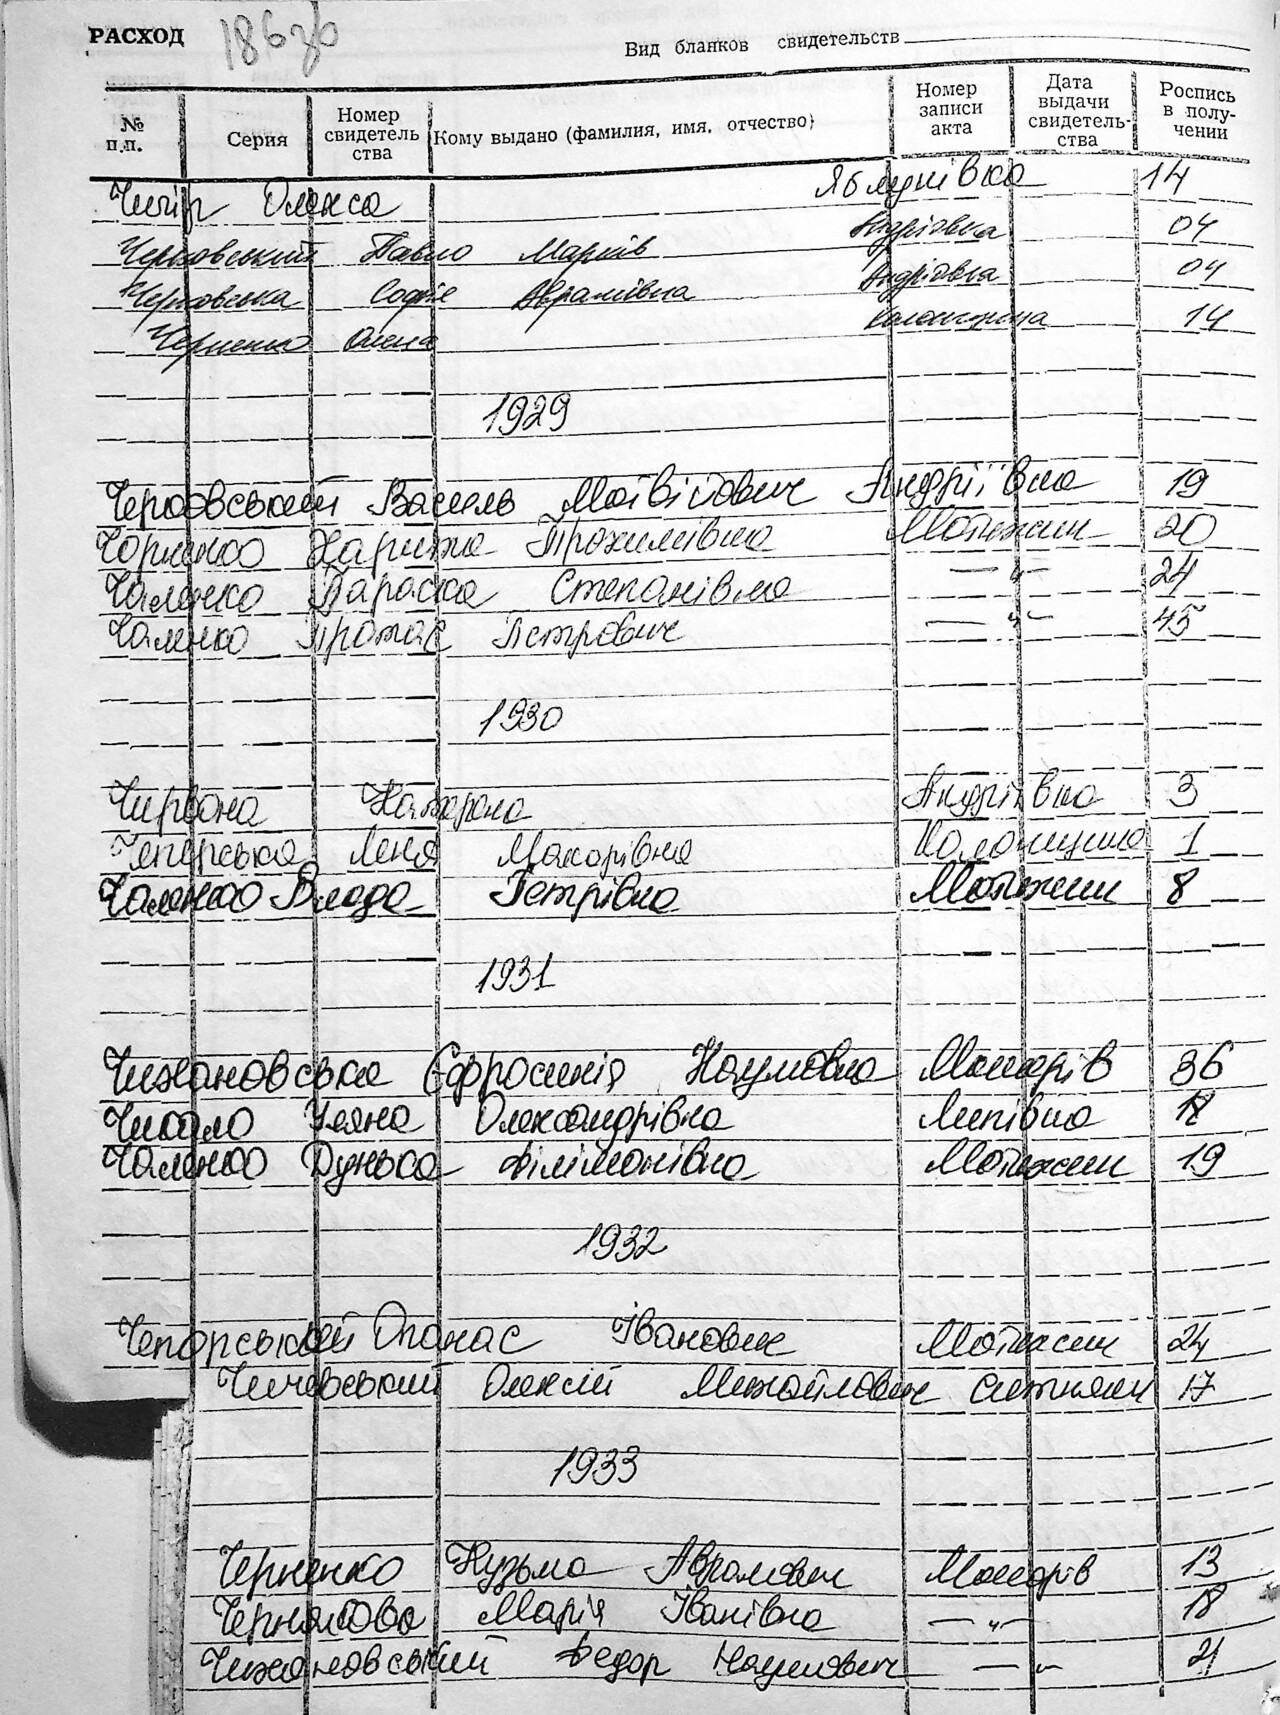 РАСХОД
Вид бланков свидетельств
№ п.п. Серия Номер свидетель ства Кому выдано (фамилия, имя, отчество) Номер записи акта Дата выдачи свидетель- ства Роспись в полу- чении
Чигір Олекса Яблунівка 14
Черковський Павло Марків Андріївка 04
Черковська Софія Аврамівна Андріївка 04
Черненко Олена 14
1929
Василь Матвійович Андріївка 19
Чорненко Харитина Трохимівна Мотижин 20
Чаленко Параска Степанівна —"— 24
Чаленко Протас Петрович —"— 45
1930
Червона Катерина Андріївка 3
Чепорська Леня Макарівна Колонщина 1
Чаленко Влада Петрівна Мотижин 8
1931
Чижановська Єфросинія Наумовна Макарів 36
Чикало Уляна Олександрівна Липівка 18
Чаленко Дунька Філімонівна Мотижин 19
1932
Чепорський Опанас Іванович Мотижин 24
Чичевський Олексій Михайлович Ситняки 17
1933
Черненко Кузьма Аврамович Макарів 13
Чернякова Марія Іванівна —"— 18
Чижановський Федор Наумович —"— 21